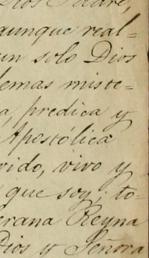 Dios Padre,
aunque real=
un solo Dios
demas miste-
a, predica y
Apostólica
rido, vivo y
que soy; to-
erana Reyna
Dios y Señora